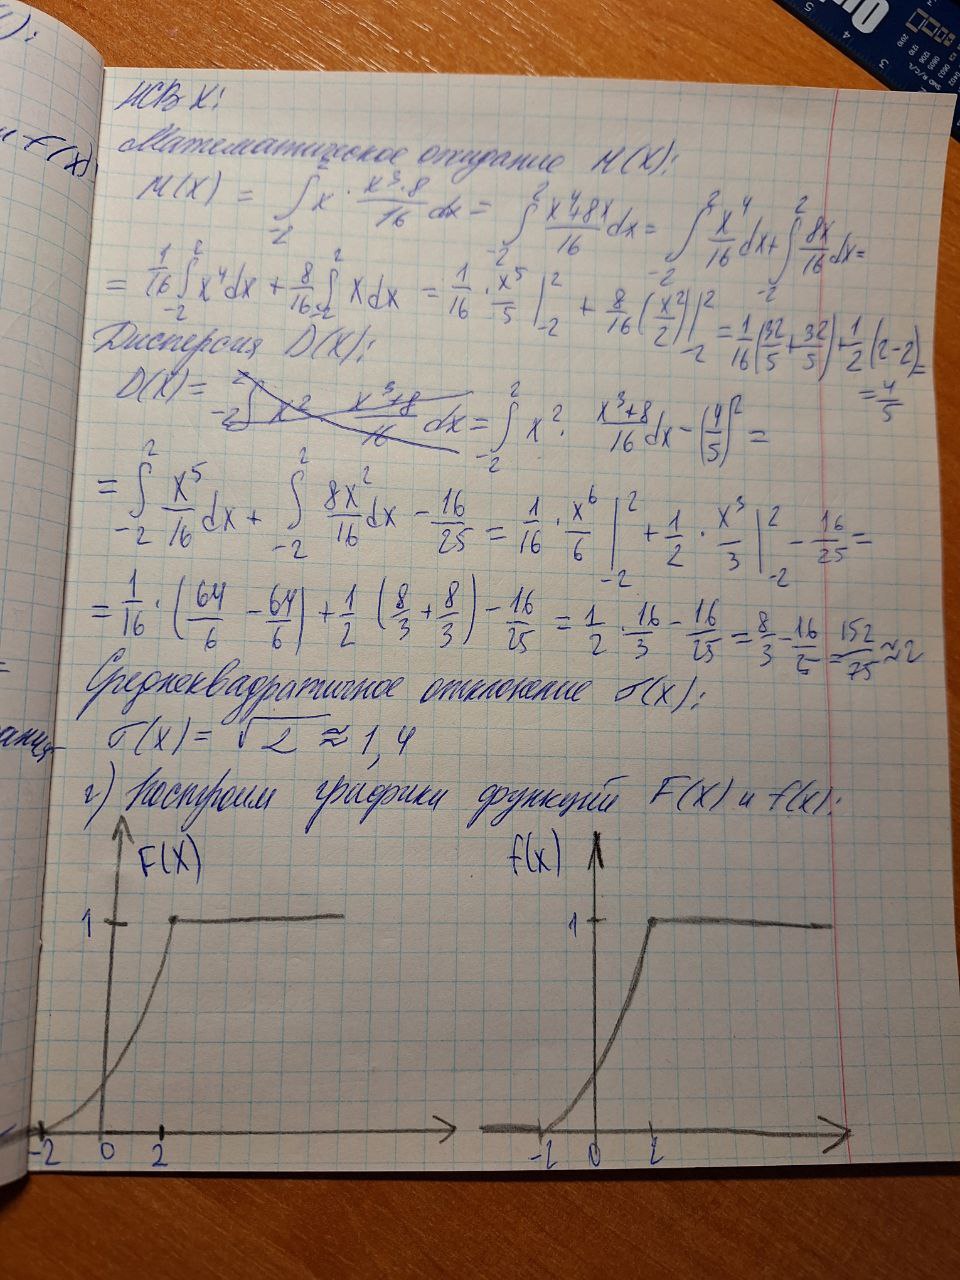 НСВ X:
Математическое ожидание M(X):
M(X) = ∫_{-2}^{2} x · (x³·8)/16 dx = ∫_{-2}^{2} (x⁴+8x)/16 dx = ∫_{-2}^{2} x⁴/16 dx + ∫_{-2}^{2} 8x/16 dx =
= 1/16 ∫_{-2}^{2} x⁴dx + 8/16 ∫_{-2}^{2} x dx = 1/16 · x⁵/5 |_{-2}^{2} + 8/16 (x²/2)|_{-2}^{2} = 1/16 (32/5 + 32/5) + 1/2 (2-2) =
= 4/5
Дисперсия D(X):
D(X) = ∫_{-2}^{2} x² (x³+8)/16 dx = ∫_{-2}^{2} x² · (x³+8)/16 dx - (4/5)² =
= ∫_{-2}^{2} x⁵/16 dx + ∫_{-2}^{2} 8x²/16 dx - 16/25 = 1/16 · x⁶/6 |_{-2}^{2} + 1/2 · x³/3 |_{-2}^{2} - 16/25 =
= 1/16 · (64/6 - 64/6) + 1/2 (8/3 + 8/3) - 16/25 = 1/2 · 16/3 - 16/25 = 8/3 - 16/5 = 152/75 ≈ 2
Среднеквадратичное отклонение σ(x):
σ(x) = √2 ≈ 1,4
г) Построим графики функций F(X) и f(x):
F(X)
1
-2 0 2
f(x)
1
-2 0 2